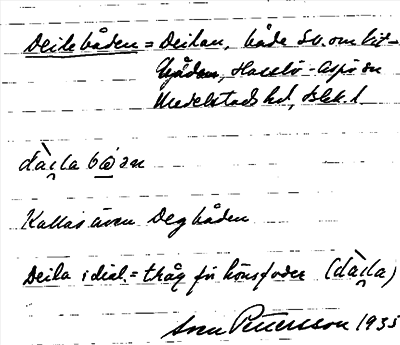 Deilebåden = Deilan, både S.v. om Kit-
hådan, Hasslö - Aspö sn
Medelstads hd, Blek. l
dàila bå̤en
Kallas även Degbåden
Deila i dial. = tråg för hönsfoder (dàila)
Sven Pettersson 1935